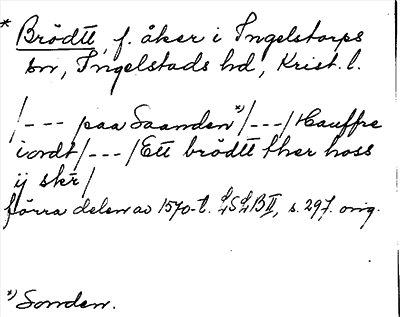 * Brödtt, f. åker i Ingelstorps
sn, Ingelstads hd, Krist. l.
/--- paa Saanden *)/---/ Hauffre
iordt /---/ Ett brödtt ther hoss
ij skr /
förra delen av 1570-t. LSLB II, s. 297. orig.
*) Sonden.